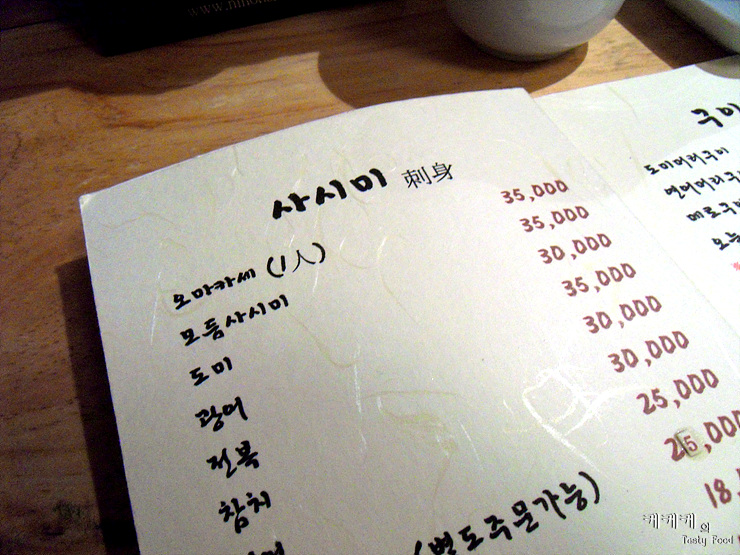 사시미 刺身
오마카세 (1人) 35,000
모듬사시미 35,000
도미 30,000
광어 35,000
전복 30,000
참치 30,000
25,000
(별도주문가능) 25,000
18,
구이
도미머리구이
연어머리구
메로구이
오늘
캐캐캐의
Tasty Food